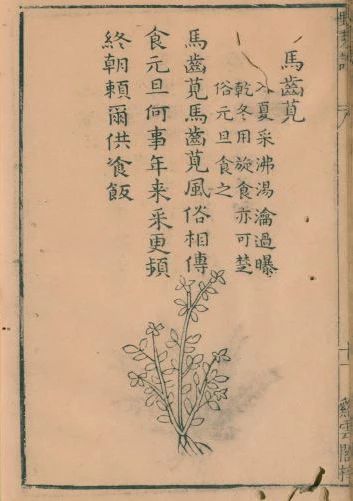 馬齒莧
入夏采沸湯瀹過曝
乾冬用旋食亦可楚
俗元旦食之
馬齒莧馬齒莧風俗相傳
食元旦何事年来采更頻
終朝頼爾供飡飯